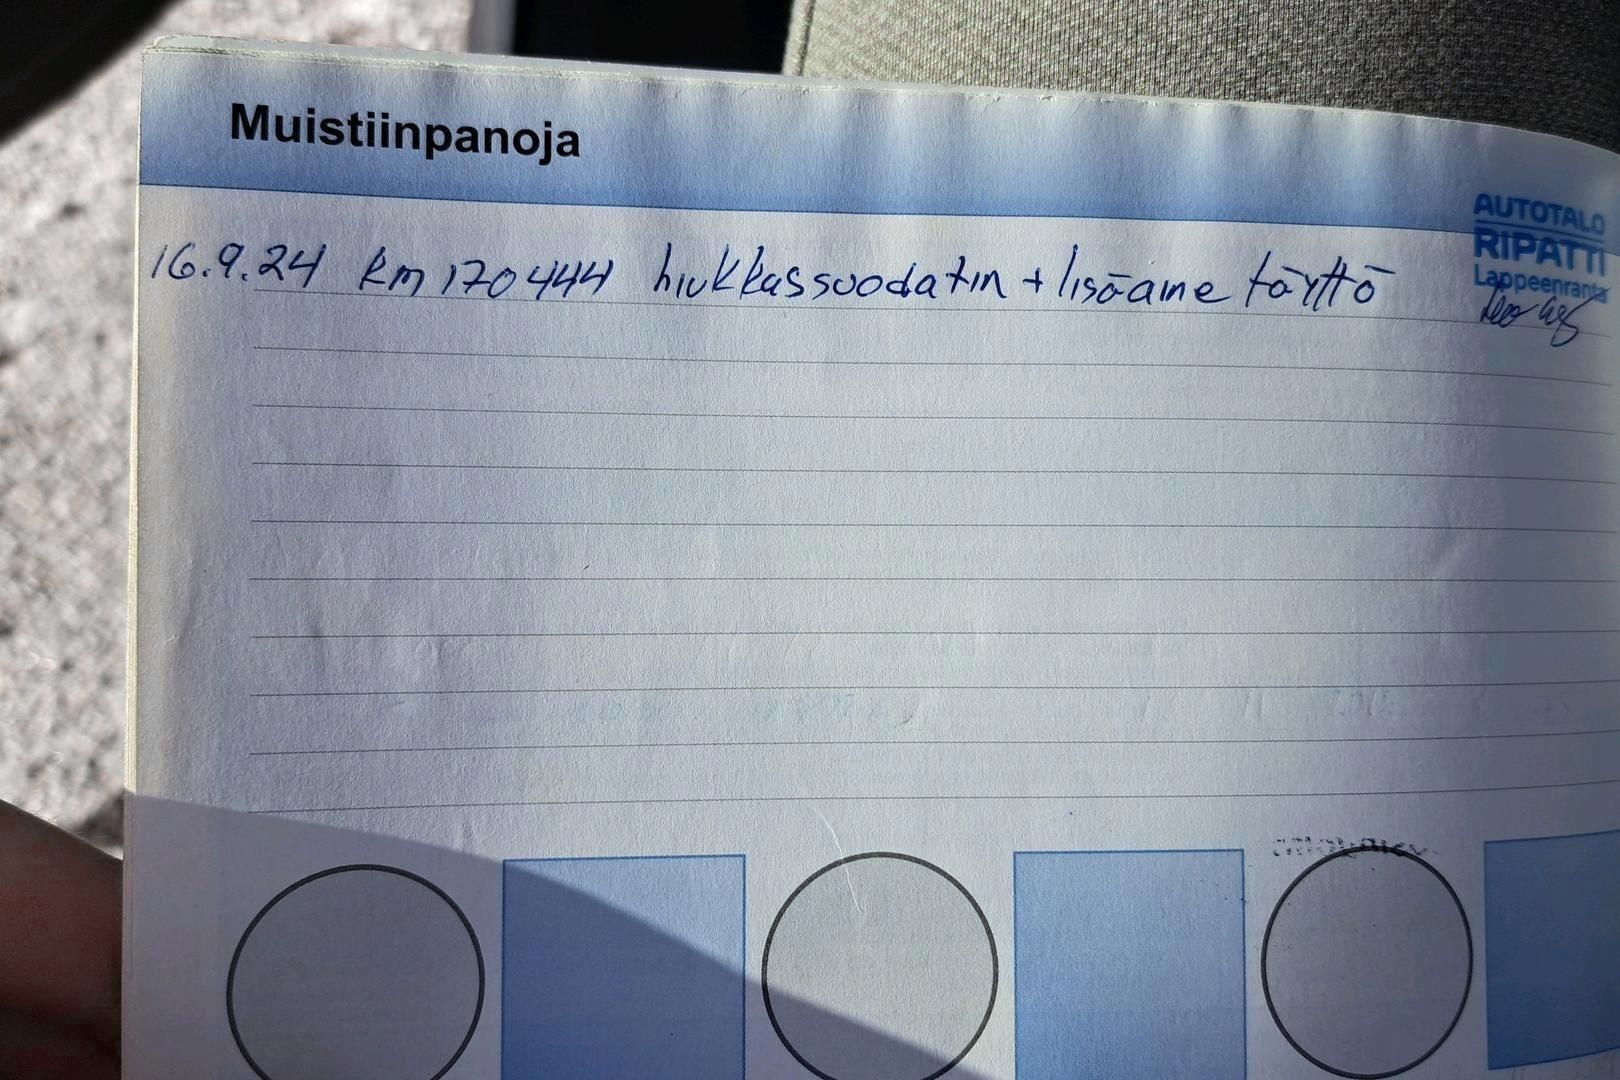 Muistiinpanoja
AUTOTALO
RIPATTI
Lappeenranta
16.9.24 km 170444 hiukkassuodatin + lisäaine täyttö